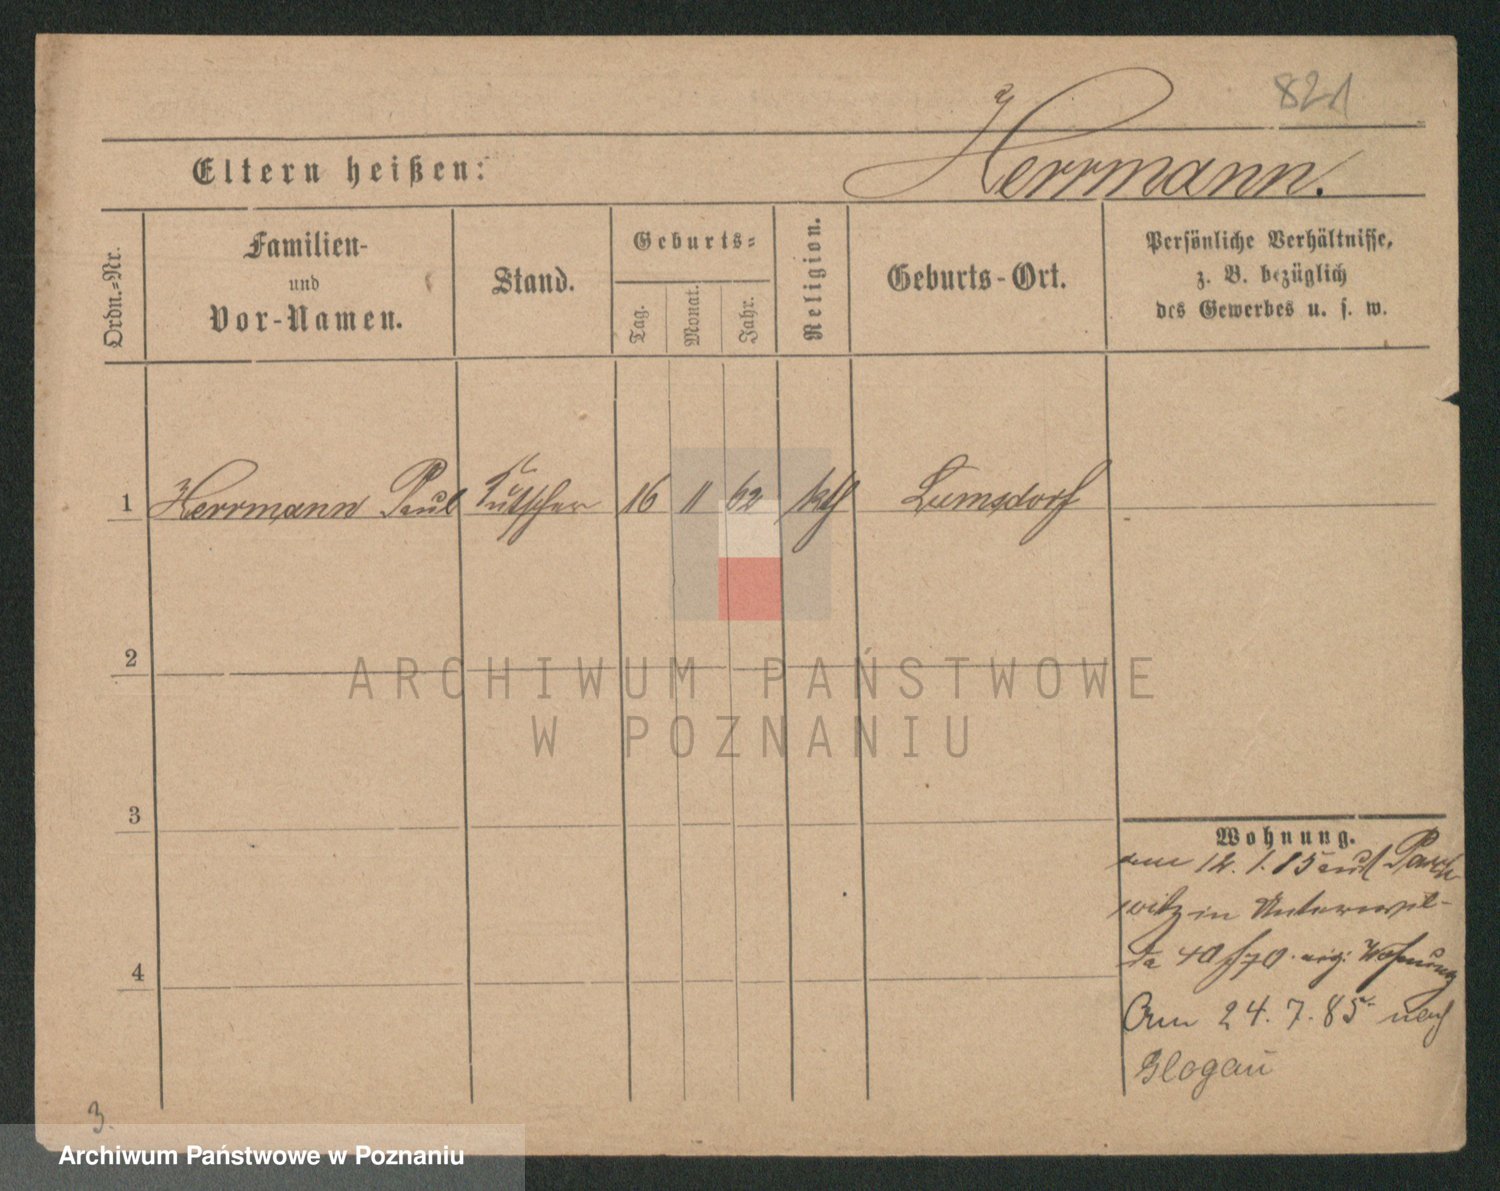 821
Eltern heißen:
Herrmann.
Ordn.-Nr.
Familien-
und
Vor-Namen.
Stand.
Geburts-
Tag.
Monat.
Jahr.
Religion.
Geburts-Ort.
Persönliche Verhältnisse,
z. B. bezüglich
des Gewerbes u. s. w.
1 Herrmann Paul Kutscher 16 11 62 kth
2
3
4
Wohnung.
12. 1. 85 aus
witz in
Wohnung
Am 24. 7. 85 nach
Glogau
3.
ARCHIWUM PAŃSTWOWE
W POZNANIU
Archiwum Państwowe w Poznaniu